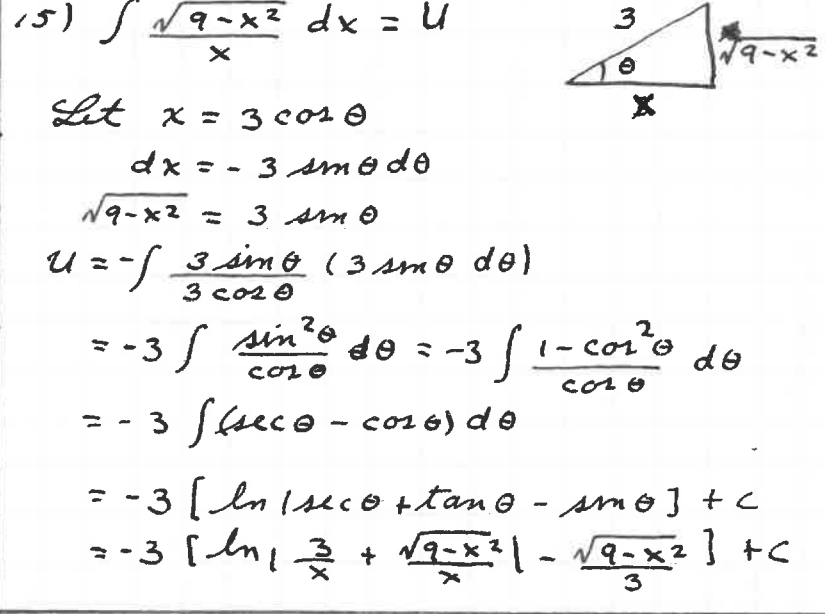 15) ∫ √(9-x²)/x dx = U
3
θ
√(9-x²)
x
Let x = 3 cos θ
dx = - 3 sin θ dθ
√(9-x²) = 3 sin θ
U = -∫ (3 sin θ)/(3 cos θ) (3 sin θ dθ)
= -3 ∫ (sin²θ)/(cos θ) dθ = -3 ∫ (1-cos²θ)/(cos θ) dθ
= - 3 ∫(sec θ - cos θ) dθ
= -3 [ ln |sec θ + tan θ - sin θ ] + c
= -3 [ ln | 3/x + √(9-x²)/x | - √(9-x²)/3 ] + C